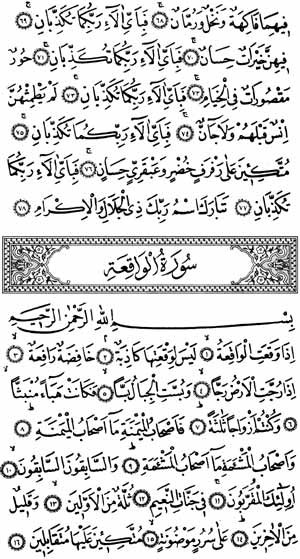 فِيهِمَا فَاكِهَةٌ وَنَخْلٌ وَرُمَّانٌ ﴿٦٨﴾ فَبِأَيِّ آلَاءِ رَبِّكُمَا تُكَذِّبَانِ ﴿٦٩﴾
فِيهِنَّ خَيْرَاتٌ حِسَانٌ ﴿٧٠﴾ فَبِأَيِّ آلَاءِ رَبِّكُمَا تُكَذِّبَانِ ﴿٧١﴾ حُورٌ
مَقْصُورَاتٌ فِي الْخِيَامِ ﴿٧٢﴾ فَبِأَيِّ آلَاءِ رَبِّكُمَا تُكَذِّبَانِ ﴿٧٣﴾ لَمْ يَطْمِثْهُنَّ
إِنْسٌ قَبْلَهُمْ وَلَا جَانٌّ ﴿٧٤﴾ فَبِأَيِّ آلَاءِ رَبِّكُمَا تُكَذِّبَانِ ﴿٧٥﴾
مُتَّكِئِينَ عَلَى رَفْرَفٍ خُضْرٍ وَعَبْقَرِيٍّ حِسَانٍ ﴿٧٦﴾ فَبِأَيِّ آلَاءِ رَبِّكُمَا
تُكَذِّبَانِ ﴿٧٧﴾ تَبَارَكَ اسْمُ رَبِّكَ ذِي الْجَلَالِ وَالْإِكْرَامِ ﴿٧٨﴾
سُورَةُ الْوَاقِعَةِ
بِسْمِ اللَّهِ الرَّحْمَٰنِ الرَّحِيمِ
إِذَا وَقَعَتِ الْوَاقِعَةُ ﴿١﴾ لَيْسَ لِوَقْعَتِهَا كَاذِبَةٌ ﴿٢﴾ خَافِضَةٌ رَافِعَةٌ ﴿٣﴾
إِذَا رُجَّتِ الْأَرْضُ رَجًّا ﴿٤﴾ وَبُسَّتِ الْجِبَالُ بَسًّا ﴿٥﴾ فَكَانَتْ هَبَاءً مُنْبَثًّا
﴿٦﴾ وَكُنْتُمْ أَزْوَاجًا ثَلَاثَةً ﴿٧﴾ فَأَصْحَابُ الْمَيْمَنَةِ مَا أَصْحَابُ الْمَيْمَنَةِ ﴿٨﴾
وَأَصْحَابُ الْمَشْأَمَةِ مَا أَصْحَابُ الْمَشْأَمَةِ ﴿٩﴾ وَالسَّابِقُونَ السَّابِقُونَ ﴿١٠﴾
أُولَٰئِكَ الْمُقَرَّبُونَ ﴿١١﴾ فِي جَنَّاتِ النَّعِيمِ ﴿١٢﴾ ثُلَّةٌ مِنَ الْأَوَّلِينَ ﴿١٣﴾ وَقَلِيلٌ
مِنَ الْآخِرِينَ ﴿١٤﴾ عَلَى سُرُرٍ مَوْضُونَةٍ ﴿١٥﴾ مُتَّكِئِينَ عَلَيْهَا مُتَقَابِلِينَ ﴿١٦﴾